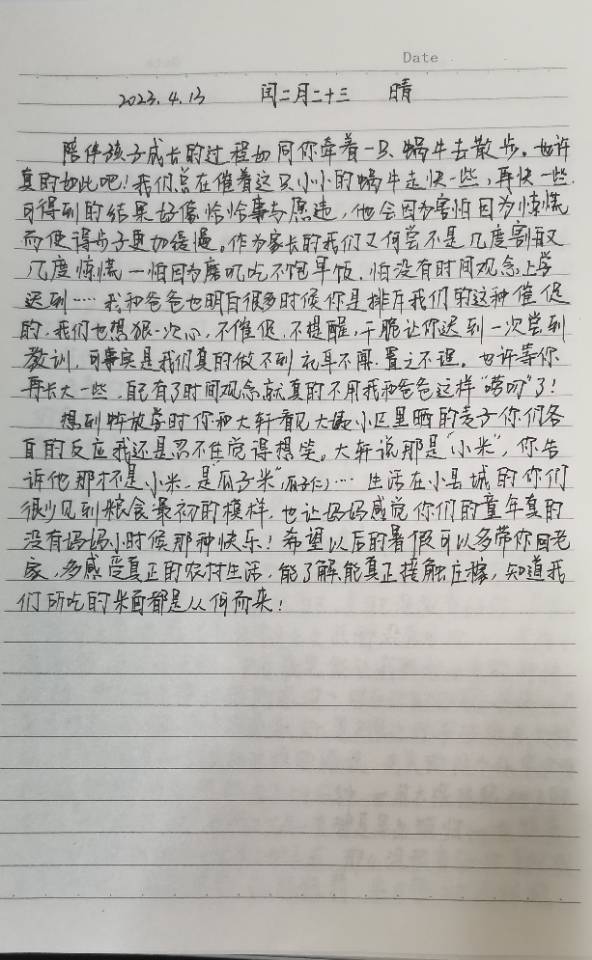 Date
2023.4.13 闰二月二十三 晴
陪伴孩子成长的过程如同你牵着一只蜗牛去散步。也许
真的如此吧！我们总在催着这只小小的蜗牛走快一些，再快一些
可得到的结果好像恰恰事与愿违，他会因为害怕因为惊慌
而使得步子更加缓慢。作为家长的我们又何尝不是几度
几度惊慌—怕因为磨叽吃不饱早饭，怕没有时间观念上学
迟到……我和爸爸也明白很多时候你是排斥我们的这种催促
的，我们也想狠一次心，不催促，不提醒，干脆让你迟到一次尝到
教训，可事实是我们真的做不到充耳不闻，置之不理。也许等你
再长大一些，有了时间观念就真的不用我和爸爸这样"唠叨"了！
想到昨放学时你和大轩看见大姨小区里晒的麦子你们各
自的反应我还是忍不住觉得想笑。大轩说那是"小米"，你告
诉他那才不是小米，是"瓜子米"（瓜子仁）…生活在小县城的你们
很少见到粮食最初的模样，也让妈妈感觉你们的童年真的
没有妈妈小时候那种快乐！希望以后的暑假可以多带你回老
家，多感受真正的农村生活，能了解能真正接触庄稼，知道我
们所吃的米面都是从何而来！